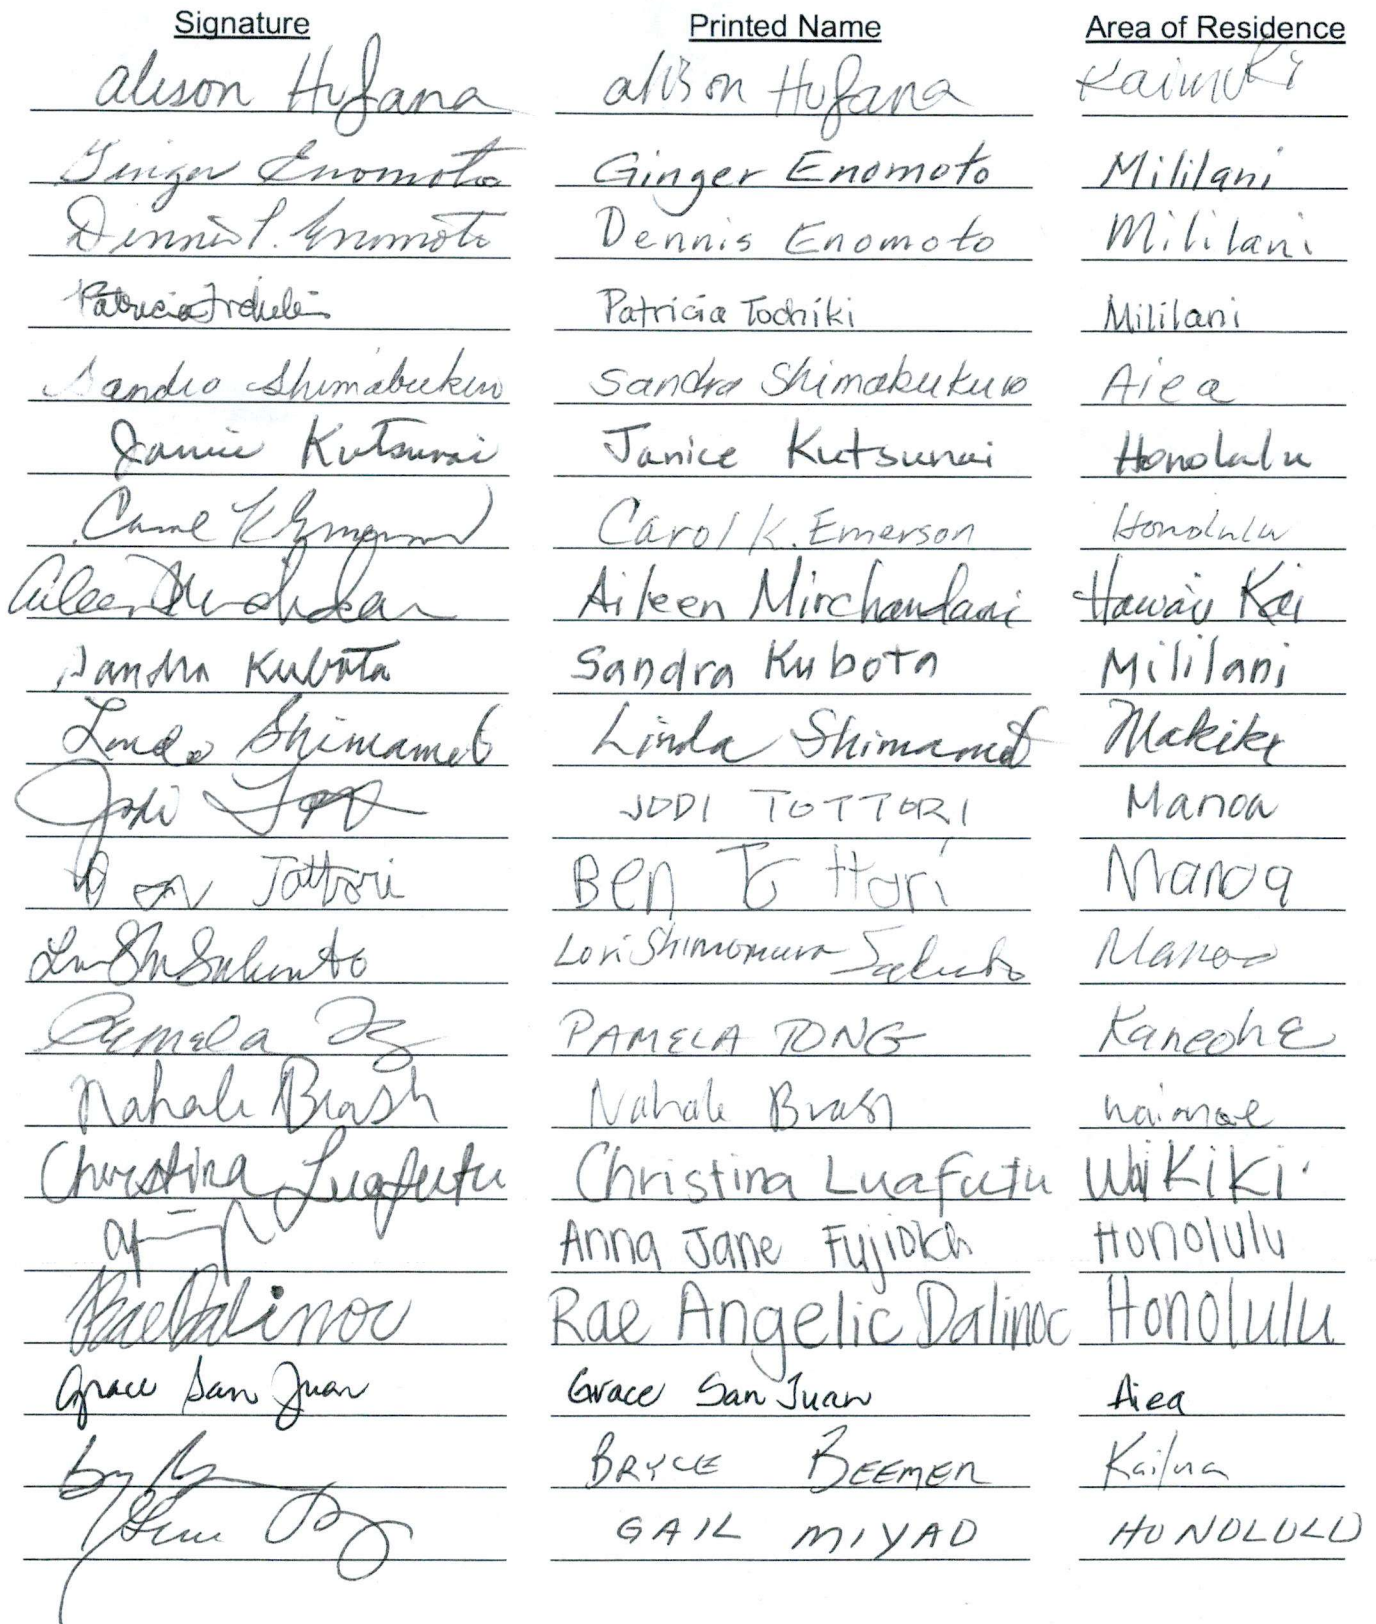 Signature Printed Name Area of Residence
Alison Hufana Alison Hufana Kaimuki
Ginger Enomoto Ginger Enomoto Mililani
Dennis T. Enomoto Dennis Enomoto Mililani
Patricia Tochiki Patricia Tochiki Mililani
Sandra Shimabukuro Sandra Shimabukuro Aiea
Janice Kutsunai Janice Kutsunai Honolulu
Carol K Emerson Carol K. Emerson Honolulu
Aileen Mirchandani Aileen Mirchandani Hawaii Kai
Sandra Kubota Sandra Kubota Mililani
Linda Shimamoto Linda Shimamoto Makiki
Jodi JODI TOTTORI Manoa
Ben Tottori Ben Tottori Manoa
Sakumoto Lori Shimomura Sakumoto Manoa
Pamela PAMELA TONG Kaneohe
Nahale Brash Nahale Brash
Christina Luafutu Christina Luafutu Waikiki
Anna Jane Fujioka Honolulu
Rae Dalinoc Rae Angelic Dalinoc Honolulu
Grace San Juan Grace San Juan Aiea
BRYCE BEEMER Kailua
GAIL MIYAO HONOLULU